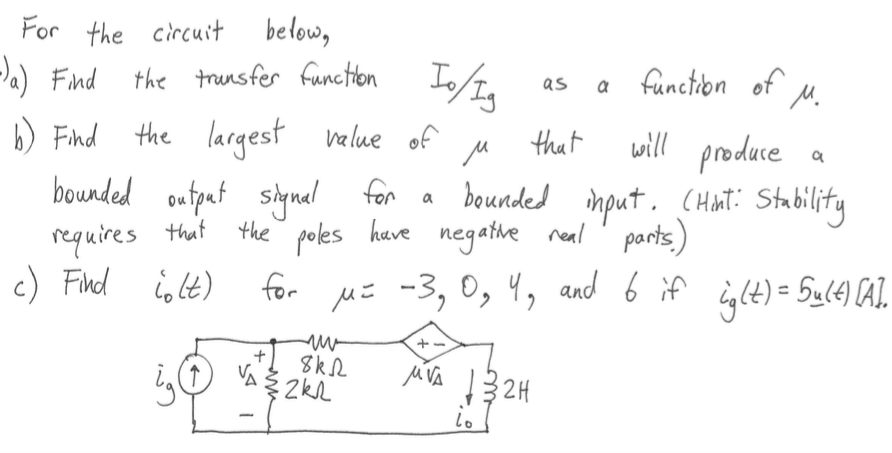 For the circuit below,
a) Find the transfer function Io/Ig as a function of μ.
b) Find the largest value of μ that will produce a
bounded output signal for a bounded input. (Hint: Stability
requires that the poles have negative real parts.)
c) Find io(t) for μ = -3, 0, 4, and 6 if ig(t) = 5u(t) [A].
+ -
+
8kΩ
ig
VΔ
2kΩ
μVΔ
2H
-
io